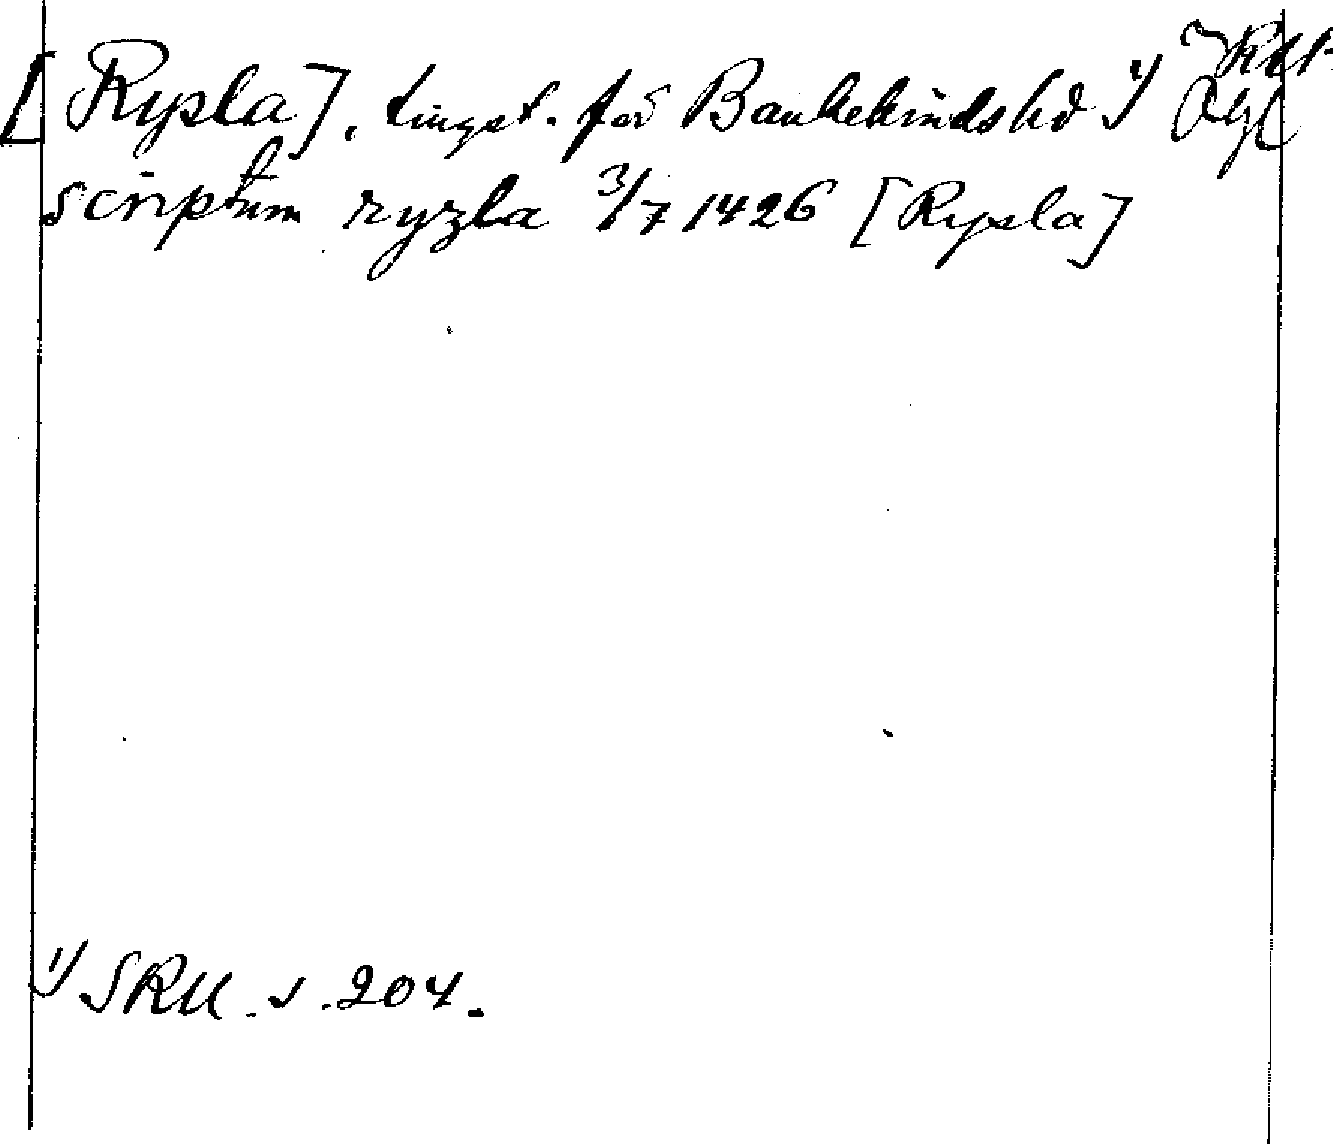 [Rysla], tingst. för Bankekinds hd 1) Ögl
scriptum ryzla 3/7 1426 [Rysla]
1) SRU. s. 204.